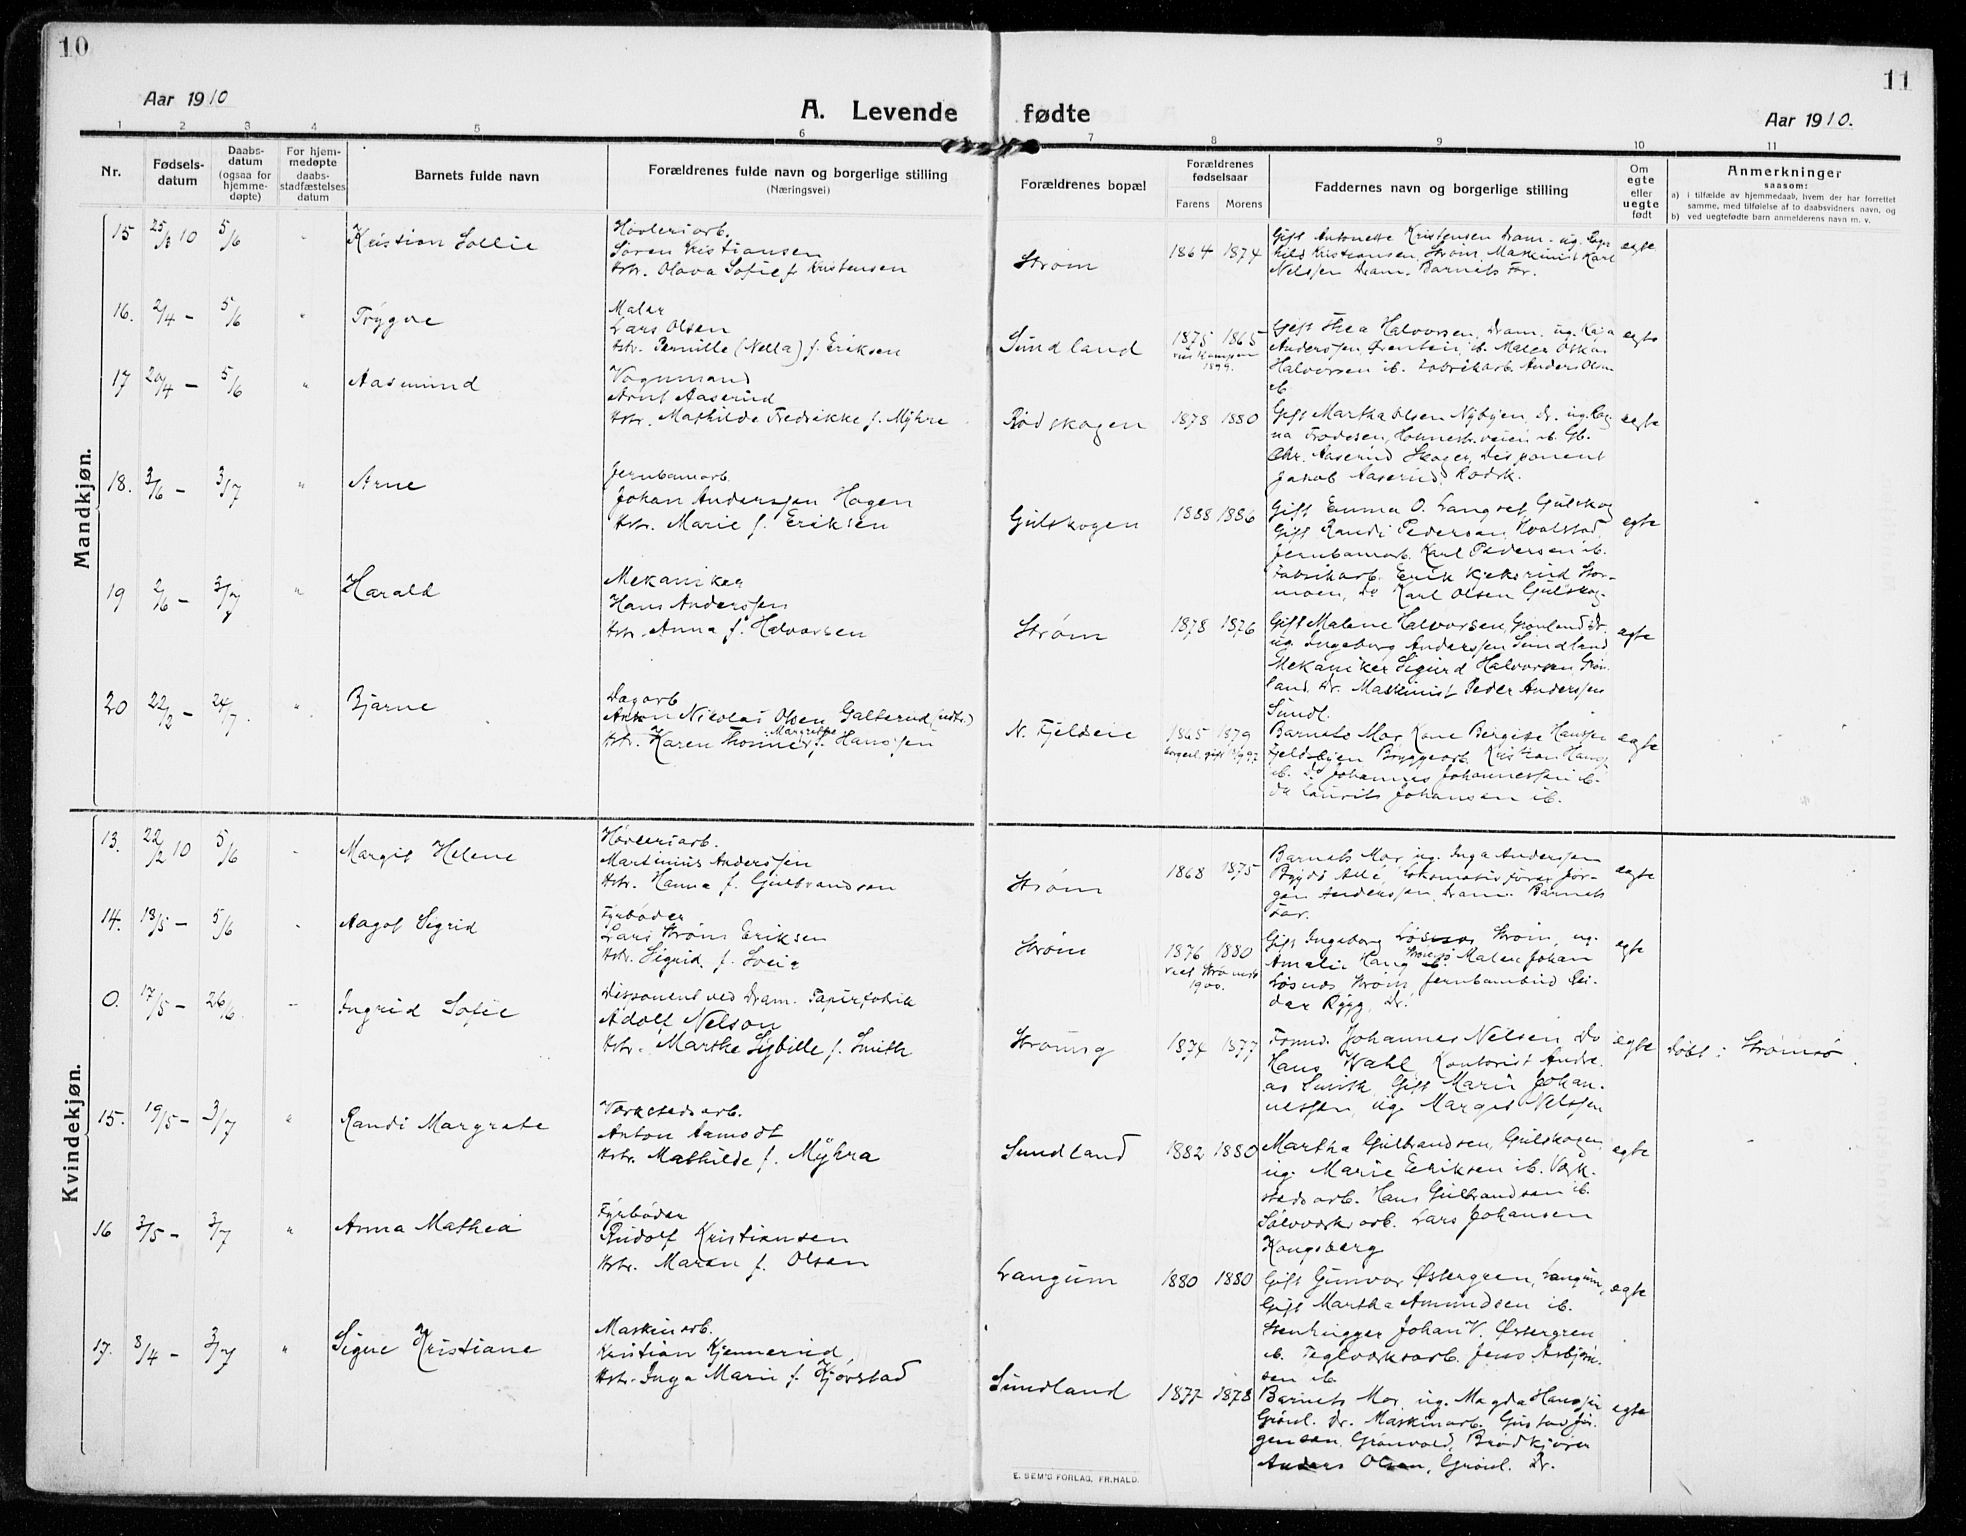 10
11
Aar 1910
A. Levende fødte
Aar 1910.
1 2 3 4 5 6 7 8 9 10 11
Nr.
Fødsels-
datum
Daabs-
datum
(ogsaa for
hjemme-
døpte)
For hjem-
medøpte
daabs-
stadfæstelses
datum
Barnets fulde navn
Forældrenes fulde navn og borgerlige stilling
(Næringsvei)
Forældrenes bopæl
Forældrenes
fødselsaar
Farens Morens
Faddernes navn og borgerlige stilling
Om
egte
eller
uegte
født
Anmerkninger
saasom:
a) i tilfælde av hjemmedaab, hvem der har forrettet
samme, med tilføielse af to daabsvidners navn, og
b) ved uegtefødte barn anmelderens navn m. v.
Mandkjøn.
15 25/3 10 5/6 " Kristian Sollie
Høvleriarb.
Søren Kristiansen
Hstr. Olava Sofie f. Kristensen
Strøm 1864 1874
Gift Antonette Kristensen Dram. ug. Rag-
hild Kristiansen, Strøm, Maskinist Karl
Nelsen Dram. Barnets Far.
egte
16. 2/4 - 5/6 " Trygve
Maler
Lars Olsen
Hstr. Pernille (Nella) f. Eriksen
Sundland 1875 1865
1899.
Gift Thea Halvorsen, Dram. ug. Kaja
Anderssen ib. Maler Oskar
Halvorsen ib. Fabrikarb. Anders Olsen
ib.
egte
17 20/4 - 5/6 " Aasmund
Vognmand
Arnt Aaserud
Hstr. Mathilde Fredrikke f. Myhre
Rødskogen 1878 1880
Gift Martha Olsen Nybyen, Dr. ug. Rag-
na Frodesen, ib. Gb.
Chr. Aaserud Skoger, Disponent
Jakob Aaserud, Rødsk.
egte
18. 3/6 - 3/7 " Arne
Jernbanearb.
Johan Anderssen Hagen
Hstr. Marie f. Eriksen
Gulskogen 1888 1886
Gift Emma O. Langset, Gulskog
Gift Randi Pedersen, Hvalstad,
Jernbanearb. Karl Pedersen ib.
Fabrikarb. Erik Kjeksrud Stor-
moen, Do Karl Olsen Gulskog.
egte
19 2/6 - 3/7 " Harald
Mekaniker
Hans Anderssen
Hstr. Anna f. Halvorsen
Strøm 1878 1876
Gift Malene Halvorsen, Grønland Dr.
ug. Ingeborg Anderssen Sundland
Mekaniker Sigurd Halvorsen, Grøn-
land. Dr. Maskinist Peder Anderssen
Sundl.
egte
20 22/2 - 24/7. " Bjarne
Dagarb
Anton Nikolai Olsen Galterud (udtr.)
Margrethe
Hstr. Karen f. Hanssen
N. Fjeldveie 1865 1879
Barnets Mor, Kone Bergise Hanssen
Fjeldbyen Bryggearb. Kristian Hanss.
ib. Do Johannes Johannessen ib.
do Laurits Johansen ib.
egte
Kvindekjøn.
13. 22/2 10 5/6 " Margit Helene
Høvleriarb.
Martinius Anderssen
Hstr. Hanna f. Gulbrandsen
Strøm 1868 1875
Barnets Mor, ug. Inga Anderssen
Bygdø Allé, Lokomotivfører Jør-
gen Anderssen, Dram. Barnets
Far.
egte
14. 13/5 - 5/6 " Aagot Sigrid
Fyrbøder
Lars Strøm Eriksen
Hstr. Sigrid f. Sveia
Strøm 1876 1880
1900.
Gift Ingeborg Løsnes Strøm, ug.
Amalie Haug ib. Maler Johan
Løsnes Strøm, Jernbanebud Rei-
dar Rygg, Dr.
egte
0. 17/5 - 26/6. " Ingrid Sofie
Disponent ved Dram. Papirfabrik
Adolf Nelson
Hstr. Marthe Sybille f. Smith
Strømsg 1874 1877
Formd. Johannes Nelsen, Do
Hans Wahl, Kontorist Andre-
as Smith, Gift Marie Johan-
nessen, ug. Margit Nelssen
egte
døbt i Strømsø.
15. 19/5 - 3/7 " Randi Margrete
Værkstedsarb.
Anton Aamodt
Hstr. Mathilde f. Myhra
Sundland 1882 1880
Martha Gulbrandsen, Gulskogen
ug. Marie Eriksen ib. Værk-
stedsarb. Hans Gulbrandsen ib.
Sølvværksarb. Lars Johansen
Kongsberg
egte
16 3/5 - 3/7 " Anna Mathea
Fyrbøder
Rudolf Kristiansen
Hstr. Maren f. Olsen
Langum 1880 1880
Gift Gunvor Østergren, Langum,
Gift Martha Amundsen ib.
Stenhugger Johan V. Østergren
ib. Teglværksarb. Jens Asbjørn-
sen ib.
egte
17. 8/4 - 3/7 " Signe Kristiane
Maskinarb.
Kristian Kjennerud
Hstr. Inga Marie f. Kjørstad
Sundland 1877 1878
Barnets Mor, ug. Magda Hanssen
Grønl. Dr. Maskinarb. Gustav Jør-
gensen, Grønvold, Brødkjører
Anders Olsen, Grønl. Dr.
egte
E. SEM'S FORLAG, FR.HALD.